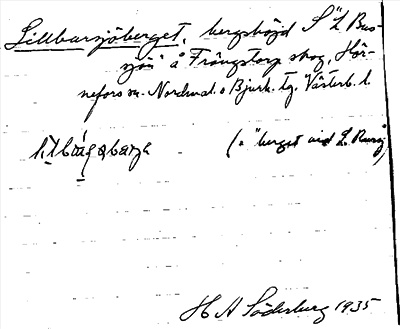 Lillbursjöberget, bergshöjd S "L. Bur-
sjön" å Frängstorp skog, Hör-
nefors sn. Nordmal. o Bjurh. tg. Västerb. l.
(= "berget vid L. Bursj.
H A Söderberg 1935